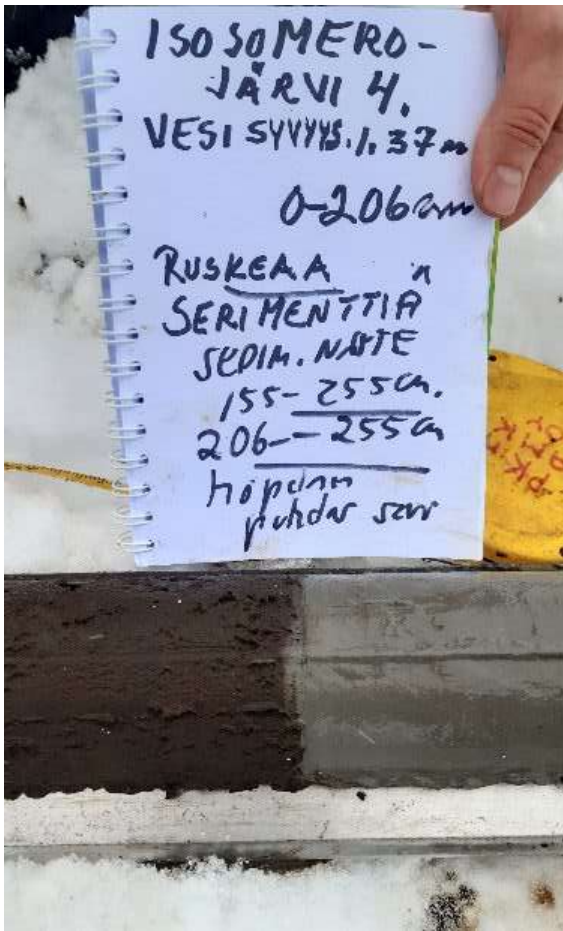 ISO SOMERO-
JÄRVI 4.
VESI SYVYYS. 1.37 m
0-206 cm
RUSKEAA
SERIMENTTIÄ
SEDIM. NÄYTE
155-255 cm.
206--255 cm
Hopean
puhdas savi